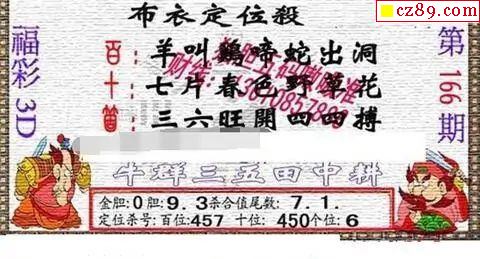 cz89.com
布衣定位殺
福彩3D
第166期
百:羊叫鷄啼蛇出洞
十:七片春色野草花
個:三六旺開四四搏
牛群三五田中耕
金胆:0胆:9.3杀合值尾数:7.1.
定位杀号:百位:457 十位:450个位:6